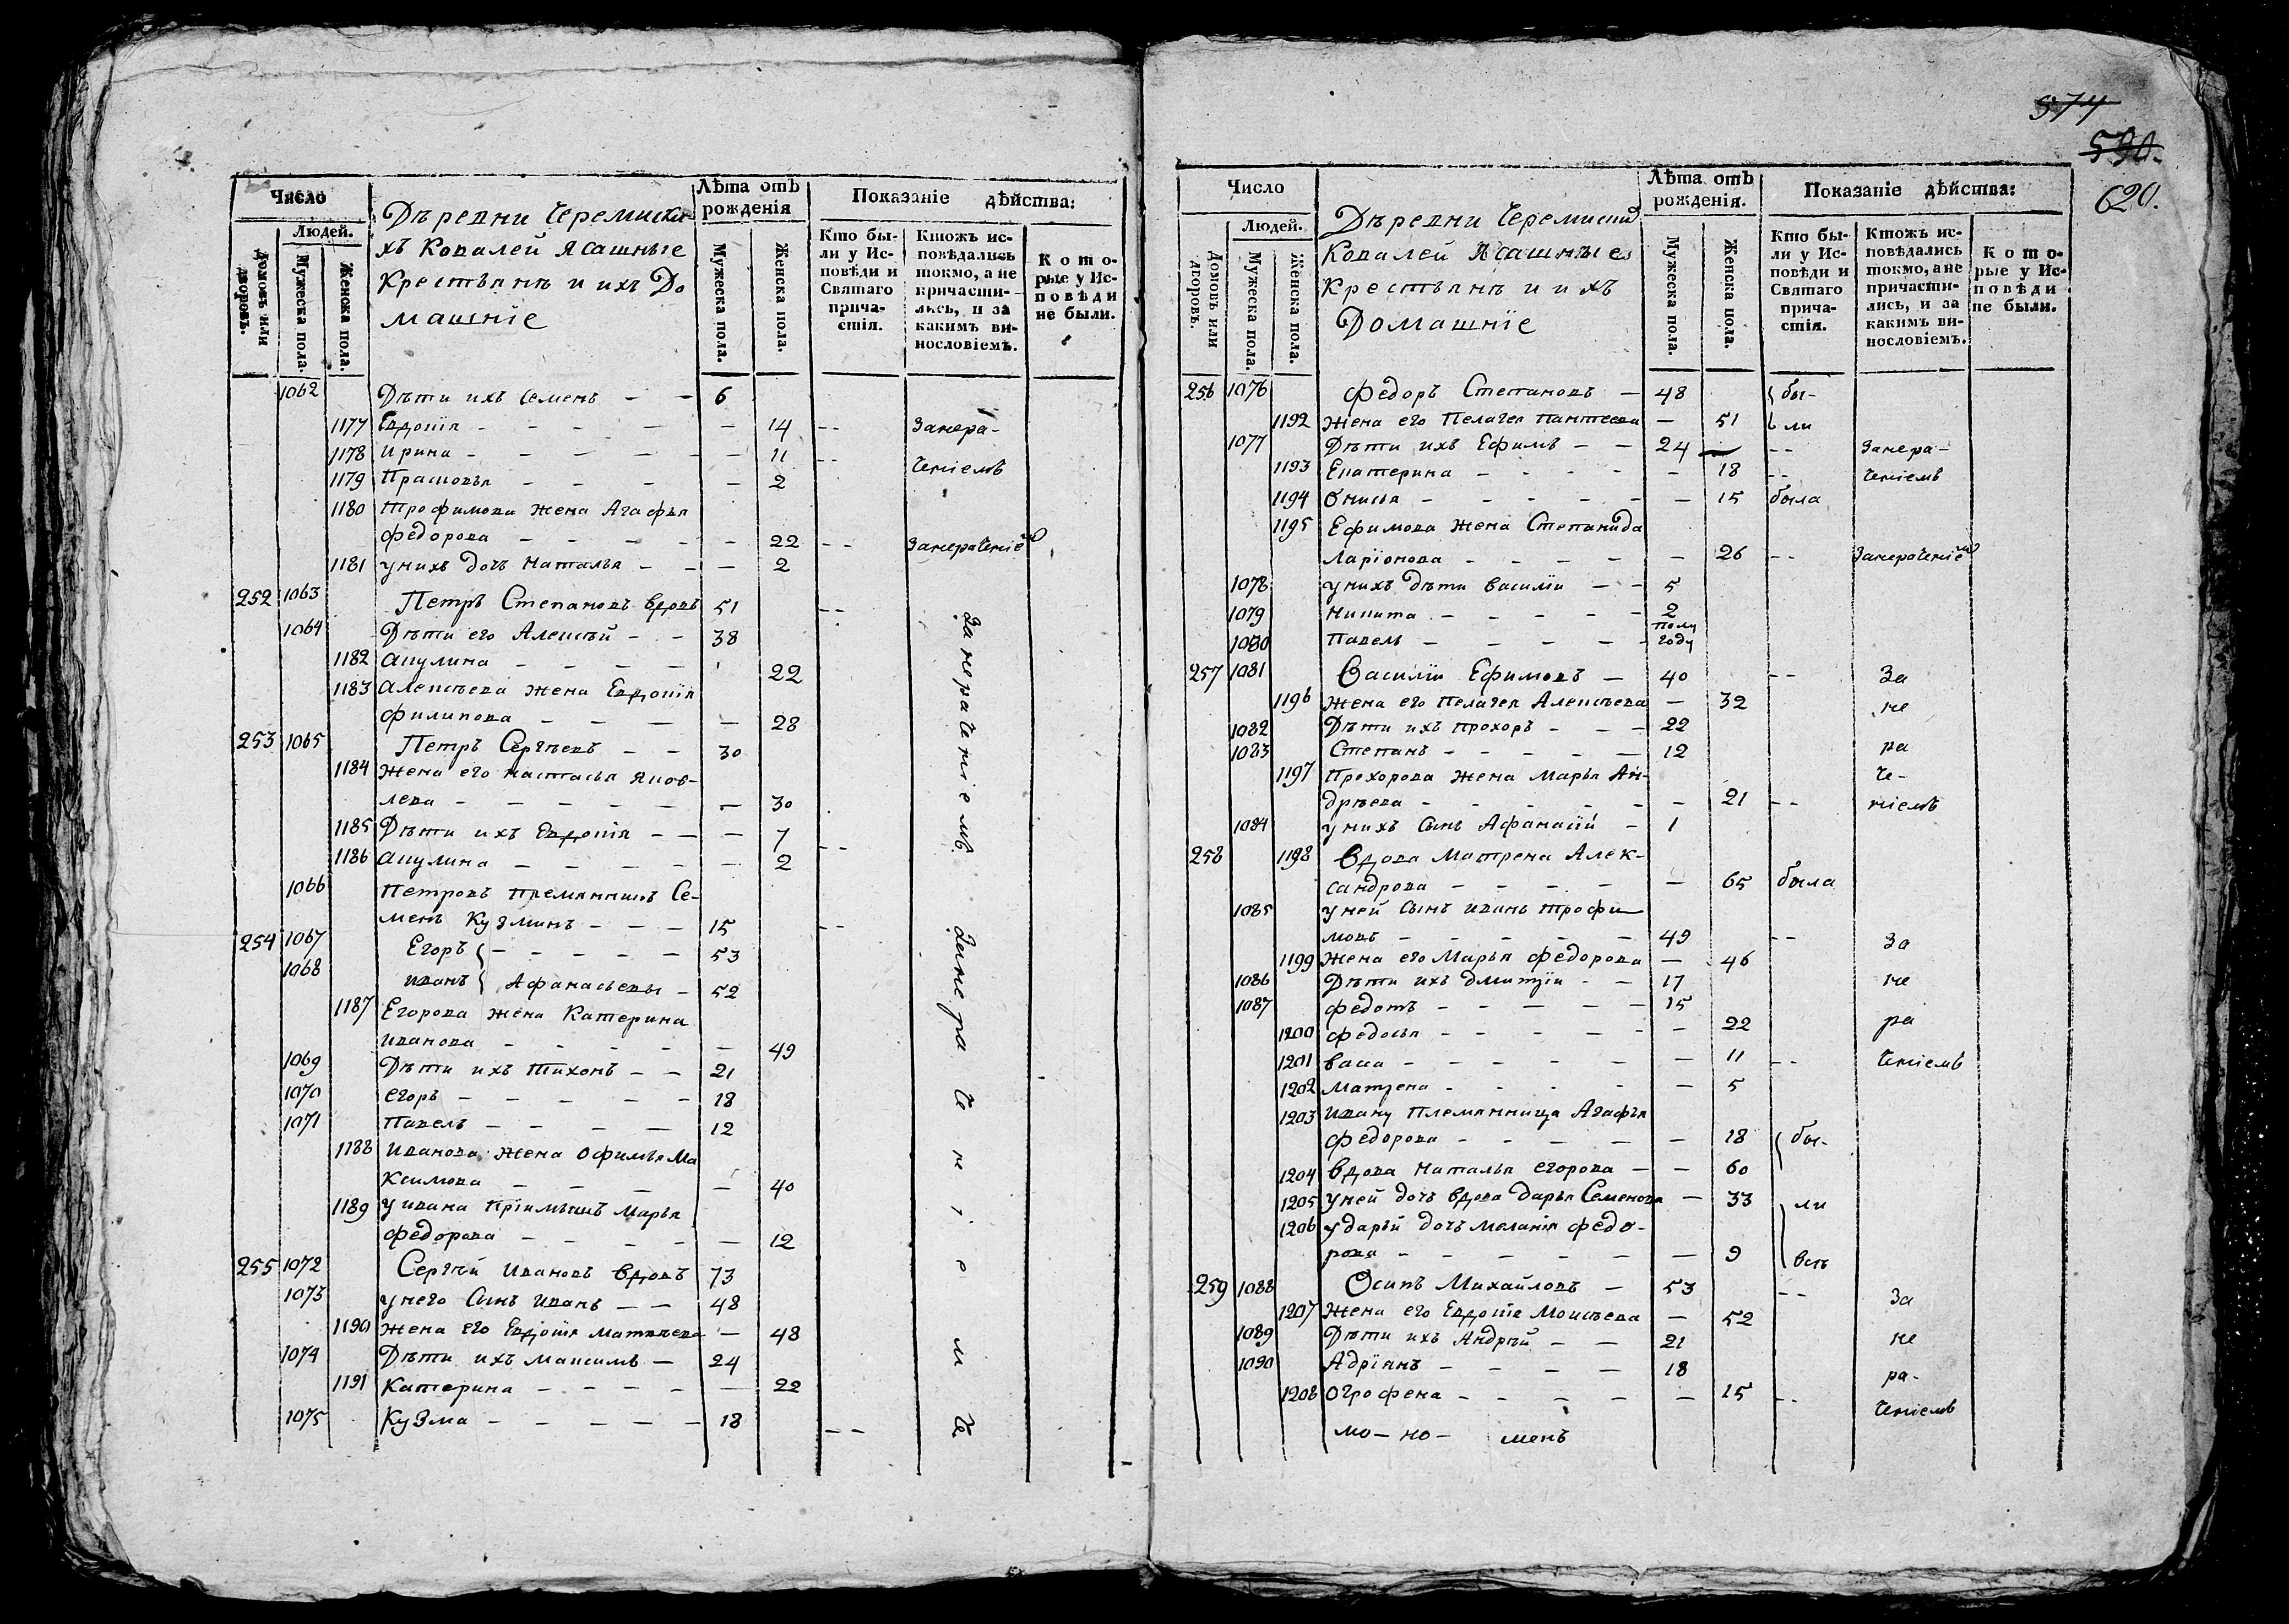 Число
Людей.
Домовъ или дворовъ.
Мужеска пола.
Женска пола.
Деревни Черемиски-
хъ Ковалей Ясашные
Крестьянъ и ихъ До
машніе
Лѣта отъ рожденія
Мужеска пола.
Женска пола.
Показаніе дѣйства:
Кто бы-
ли у Ис-
повѣди и
Святаго
прича-
стія.
Ктожъ ис-
повѣдались
токмо, а не
причасти-
лись, и за
какимъ ви-
нословіемъ.
Кото-
рые у Ис-
повѣди
не были.
1062 Дѣти ихъ Семенъ — — 6
1177 Евдокія — 14 -- Занера-
1178 Ирина — 11 -- ченіемъ
1179 Прасковья — 2
1180 Трофимова жена Агафья
Федорова — 22 -- Занераченіемъ
1181 у нихъ дочь Наталья — 2
252 1063 Петръ Степановъ вдовъ 51 --
1064 Дѣти его Алексѣй — 38
1182 Акулина — 22
1183 Алексѣева жена Евдокія
Филипова — 28
253 1065 Петръ Сергѣевъ — 30
1184 Жена его Настасья Яков-
лева — 30
1185 Дѣти ихъ Евдокія — 7 --
1186 Акулина — 2
1066 Петровъ племянникъ Се-
менъ Кузминъ — 15 --
254 1067 Егоръ { — 53
1068 Иванъ { Афанасьевы — 52
1187 Егорова жена Катерина
Иванова — 49
1069 Дѣти ихъ Тихонъ — 21
1070 Егоръ — 18
1071 Павелъ — 12
1188 Иванова жена Офимья Ма
ксимова — 40
1189 у Ивана пріимышъ Марья
Федорова — 12
255 1072 Сергѣй Ивановъ вдовъ 73
1073 у него сынъ Иванъ — 48
1190 Жена его Евдокія Матвѣева — 48
1074 Дѣти ихъ Максимъ — 24
1191 Катерина — 22
1075 Кузма — 18 --
Занераченіемъ
Занераченіемъ
574
590.
620.
Число
Людей.
Домовъ или дворовъ.
Мужеска пола.
Женска пола.
Деревни Черемиски
Ковалей Ясашные
Крестьянъ и ихъ
Домашніе
Лѣта отъ рожденія.
Мужеска пола.
Женска пола.
Показаніе дѣйства:
Кто бы-
ли у Ис-
повѣди и
Святаго
прича-
стія.
Ктожъ ис-
повѣдались
токмо, а не
причасти-
лись, и за
какимъ ви-
нословіемъ.
Кото-
рые у Ис-
повѣди
не были.
256 1076 Федоръ Степановъ — 48 бы-
1192 Жена его Пелагея — 51 ли
1077 Дѣти ихъ Ефимъ — 24 -- Занера-
1193 Екатерина — 18 -- ченіемъ
1194 Онисья — 15 была
1195 Ефимова жена Степанида
Ларіонова — 26 -- Занераченіемъ
1078 у нихъ дѣти Василіи — 5
1079 Никита — 2
1080 Павелъ — полу году
257 1081 Василіи Ефимовъ — 40 -- За
1196 Жена его Пелагея Алексѣева — 32 не
1082 Дѣти ихъ Прохоръ — 22
1083 Степанъ — 12 ра
1197 Прохорова жена Марья Ан-
дрѣева — 21 -- че-
1084 у нихъ сынъ Афанасій — 1 ніемъ
258 1198 Вдова Матрена Алек-
сандрова — 65 была
1085 у ней сынъ Иванъ Трофи
мовъ — 49 -- За
1199 Жена его Марья Федорова — 46
1086 Дѣти ихъ Дмитріи — 17 не
1087 Федотъ — 15
1200 Федосья — 22 ра
1201 Васа — 11 -- ченіемъ
1202 Матрена — 5
1203 Ивану племянница Агафья
Федорова — 18 бы-
1204 Вдова Наталья Егорова — 60
1205 у ней дочь вдова Дарья Семенова — 33 ли
1206 у Дарьи дочь Меланія Федо-
рова — 9 всѣ
259 1088 Осипъ Михайловъ — 53 -- За
1207 Жена его Евдокія Моисѣева — 52
1089 Дѣти ихъ Андрѣй — 21 не
1090 Адріянъ — 18 ра-
1208 Огрофена — 15 -- ченіемъ
мо- но- менъ